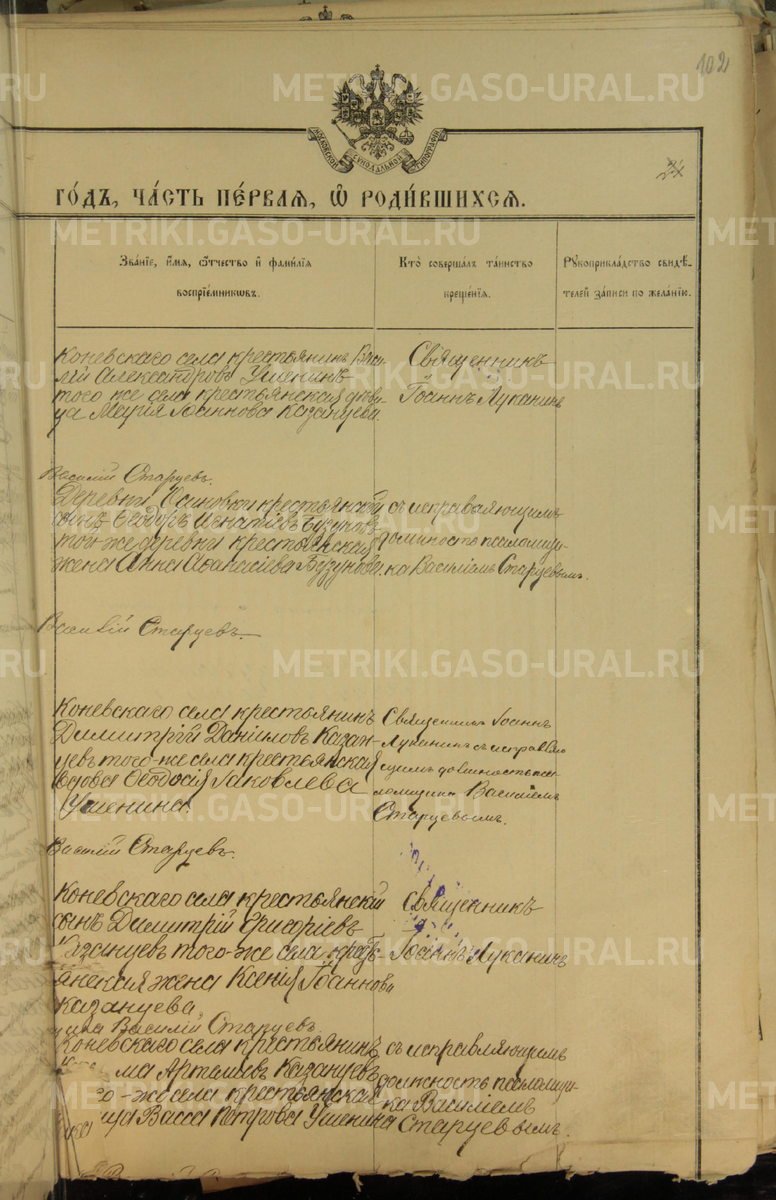 102
МОСКОВСКОЙ СѴНОДАЛЬНОЙ ТИПОГРАФІИ
METRIKI.GASO-URAL.RU
го́дъ, ча́сть пе́рвая, ѡ҆ роди́вшихсѧ.
Зва́нїе, и҆́мѧ, ѻ҆́тчество и҆ фами́лїѧ
воспрїе́мникѡвъ.
Кто̀ соверша́лъ та́инство
креще́нїѧ.
Рꙋкоприкла́дство свидѣ́-
телей за́писи по жела́нїю.
Коневскаго села крестьянинъ Васи-
лій Александровъ Ушенинъ
того же села крестьянская дѣви-
ца Марія Іоаннова Казанцева.
Священникъ
Іоаннъ Луканинъ
Василій Старцевъ.
Деревни Осиновки крестьянскій
сынъ Ѳеодоръ Игнатіевъ Бузуновъ
того-же деревни крестьянская
жена Анна Аѳанасіева Бузунова.
съ исправляющимъ
должность псаломщи-
ка Василіемъ Старцевымъ.
Василій Старцевъ.
Коневскаго села крестьянинъ
Димитрій Даніиловъ Казан-
цевъ того-же села крестьянская
вдова Ѳеодосія Іаковлева
Ушенина.
Священникъ Іоаннъ
Луканинъ съ исправляю-
щимъ должность пса-
ломщика Василіемъ
Старцевымъ.
Василій Старцевъ.
Коневскаго села крестьянскій
сынъ Димитрій Григоріевъ
Казанцевъ того-же села кресть-
янская жена Ксенія Іоаннова
Казанцева.
Священникъ
Іоаннъ Луканинъ
Василій Старцевъ
Коневскаго села крестьянинъ
ма Артемьевъ Казанцевъ
го-же села крестьянская
ца Васса Петрова Ушенина
съ исправляющимъ
должность псаломщи-
ка Василіемъ
Старцевымъ.